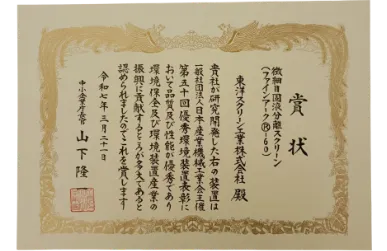 賞状
微細目固液分離スクリーン
(ファインアークⓇ-60)
東洋スクリーン工業株式会社 殿
貴社が研究開発した右の装置は
一般社団法人日本産業機械工業会主催
第五十回優秀環境装置表彰に
おいて品質及び性能が優秀であり
環境保全及び環境装置産業の
振興に貢献するところが多大であると
認められましたのでこれを賞します
令和七年三月二十一日
中小企業庁長官 山下隆